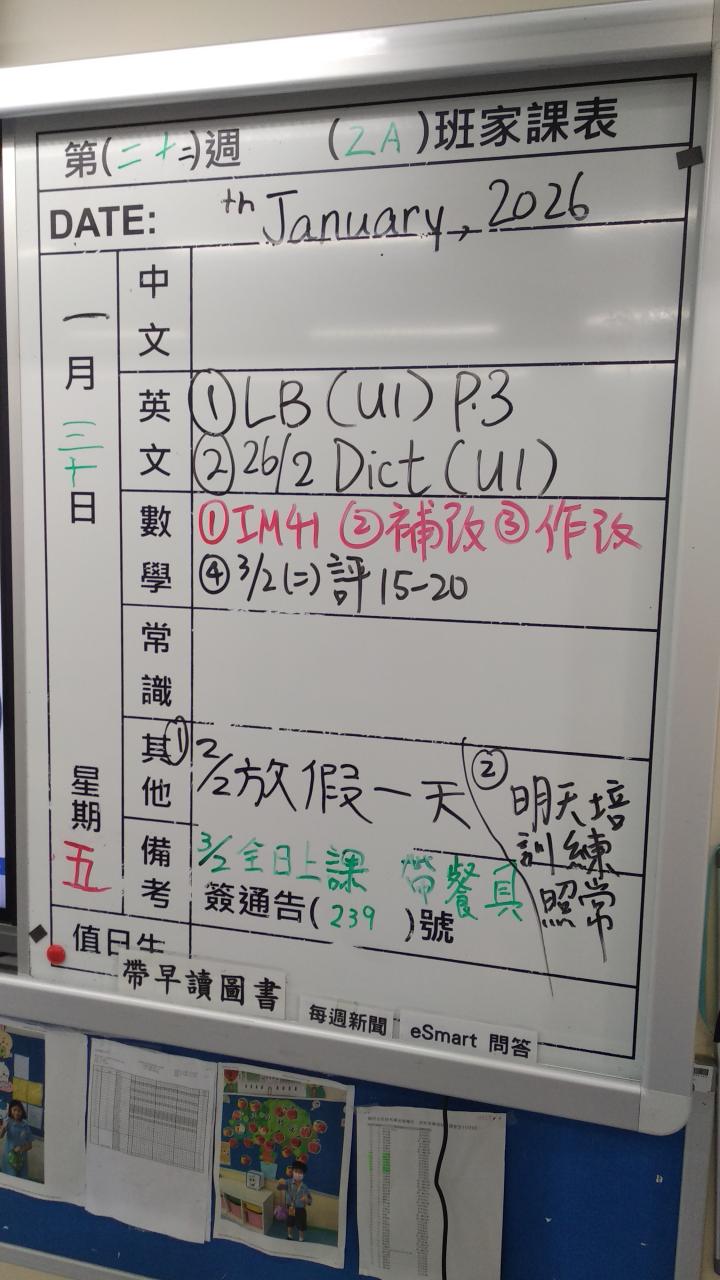 第(二十二)週 (2A)班家課表
DATE: th January, 2026
一月三十日
星期五
中文
英文
①LB (U1) P.3
②26/2 Dict (U1)
數學
①IM41 ②補改 ③作改
④3/2(二)評15-20
常識
其他
①2/2放假一天
②明天培訓練照常
備考
3/2全日上課 帶餐具
簽通告(239)號
值日生
帶早讀圖書
每週新聞
eSmart 問答